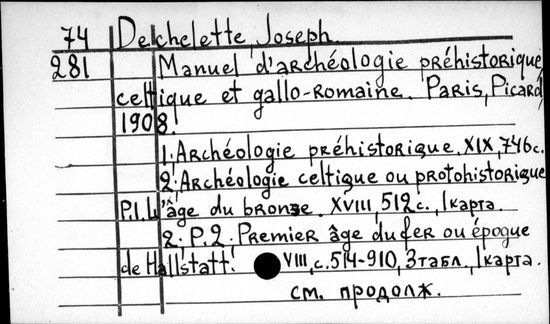 74 Dechelette, Joseph.
281 Manuel d'archéologie préhistorique,
celtique et gallo-romaine. Paris, Picard,
1908.
1. Archéologie préhistorique. XIX, 746 с.
2. Archéologie celtique ou protohistorique
P.I. L'âge du bronze. XVIII, 512 с., 1 карта.
2; P.2. Premier âge du fer ou époque
de Hallstatt. VIII, с. 514-910, 3 табл., 1 карта.
см. продолж.